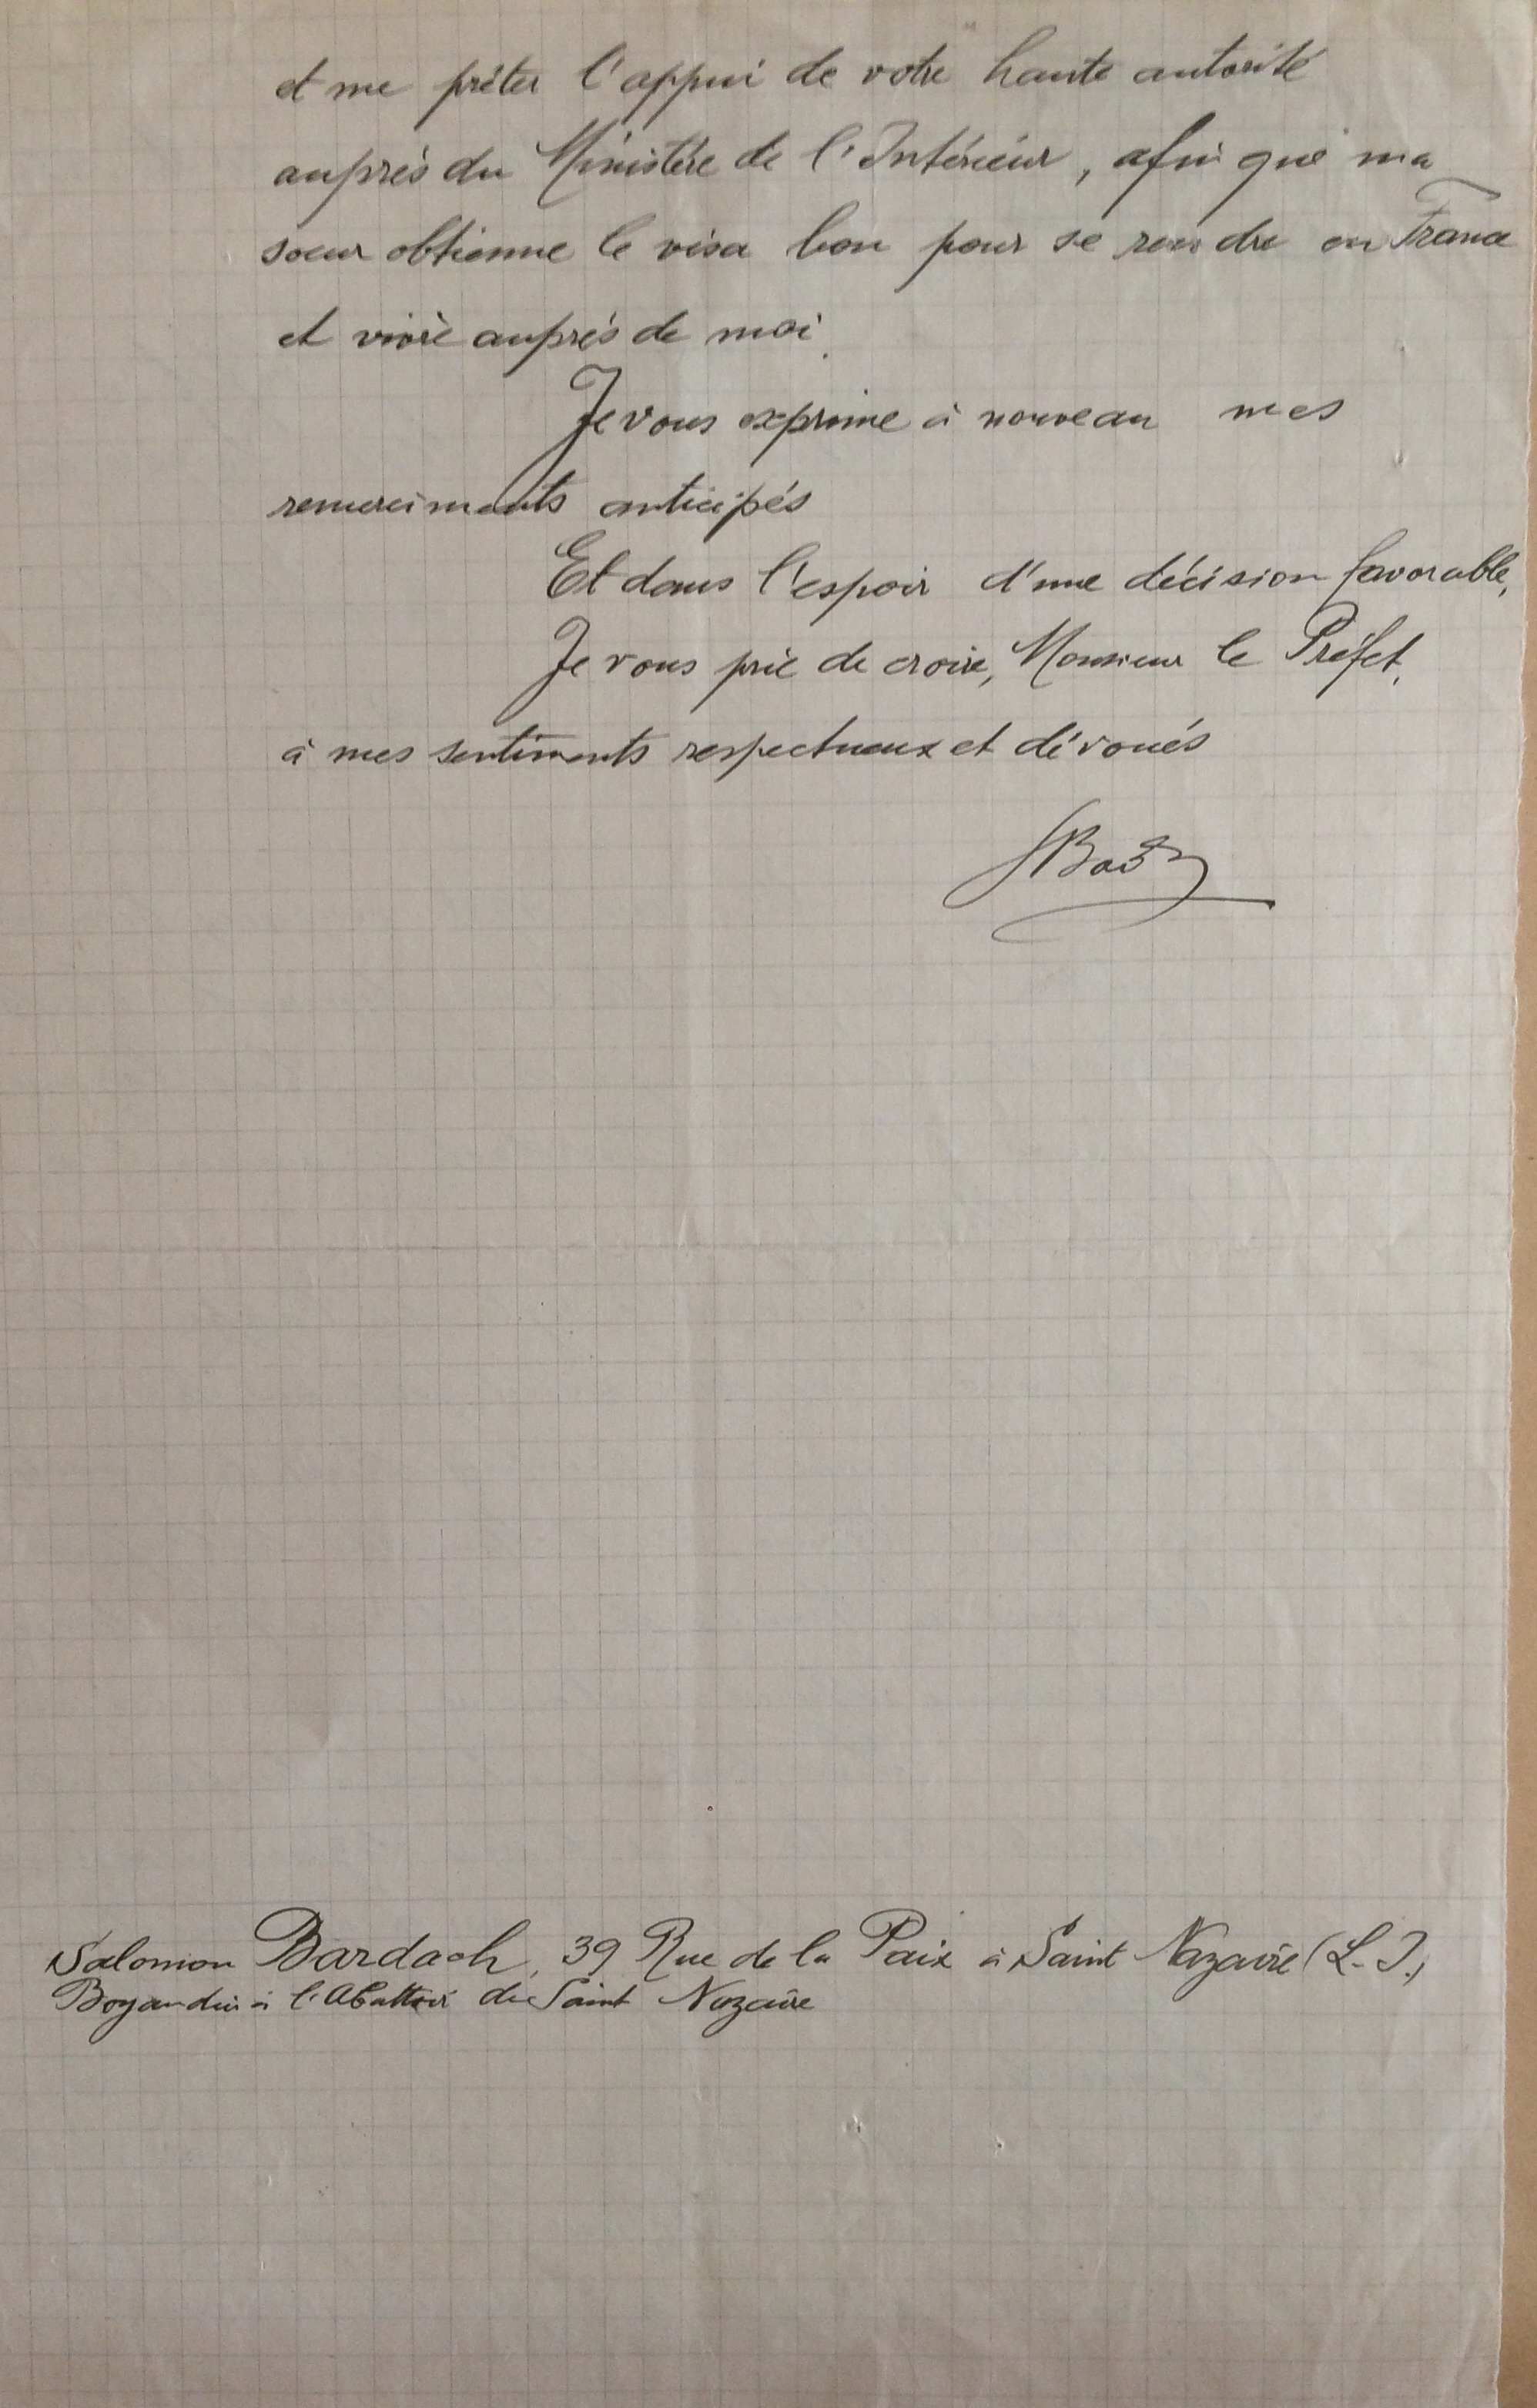 et me prêter l'appui de votre haute autorité
auprès du Ministère de l'Intérieur, afin que ma
soeur obtienne le visa bon pour se rendre en France
et vivre auprès de moi.
Je vous exprime à nouveau mes
remerciments anticipés
Et dans l'espoir d'une décision favorable,
Je vous prie de croire, Monsieur le Préfet,
à mes sentiments respectueux et dévoués
Salomon Bardach, 39 Rue de la Paix à Saint Nazaire (L. I.)
Boyaudier à l'Abattoir de Saint Nazaire